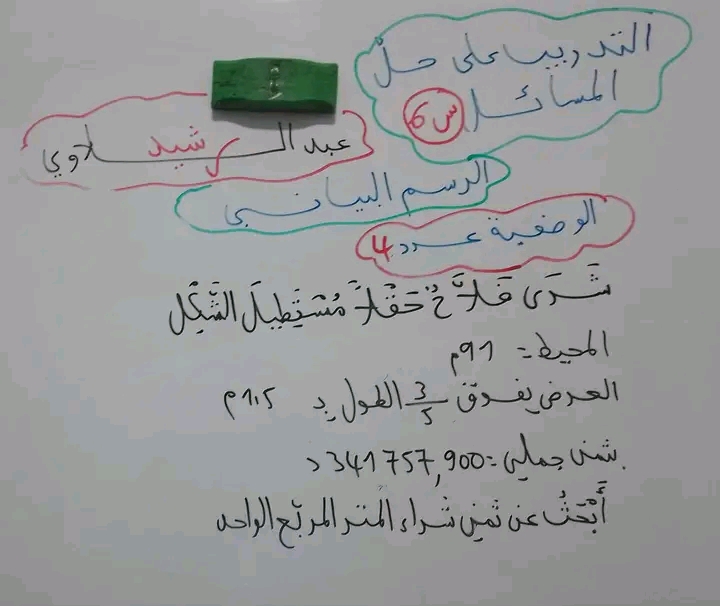 التدريب على حلّ
المسائل س6
عبد الرشيد لاوي
الرسم البياني
الوضعية عدد 4
شَرَى فَلاَّحٌ حَقْلاً مُسْتَطِيلَ الشَّكْل
المحيط = 91م
العرض يفوق 3/5 الطول بـ 1,5م
بثمن جملي = 341757,900 د
أَبْحَثُ عن ثمن شراء المتر المربّع الواحد